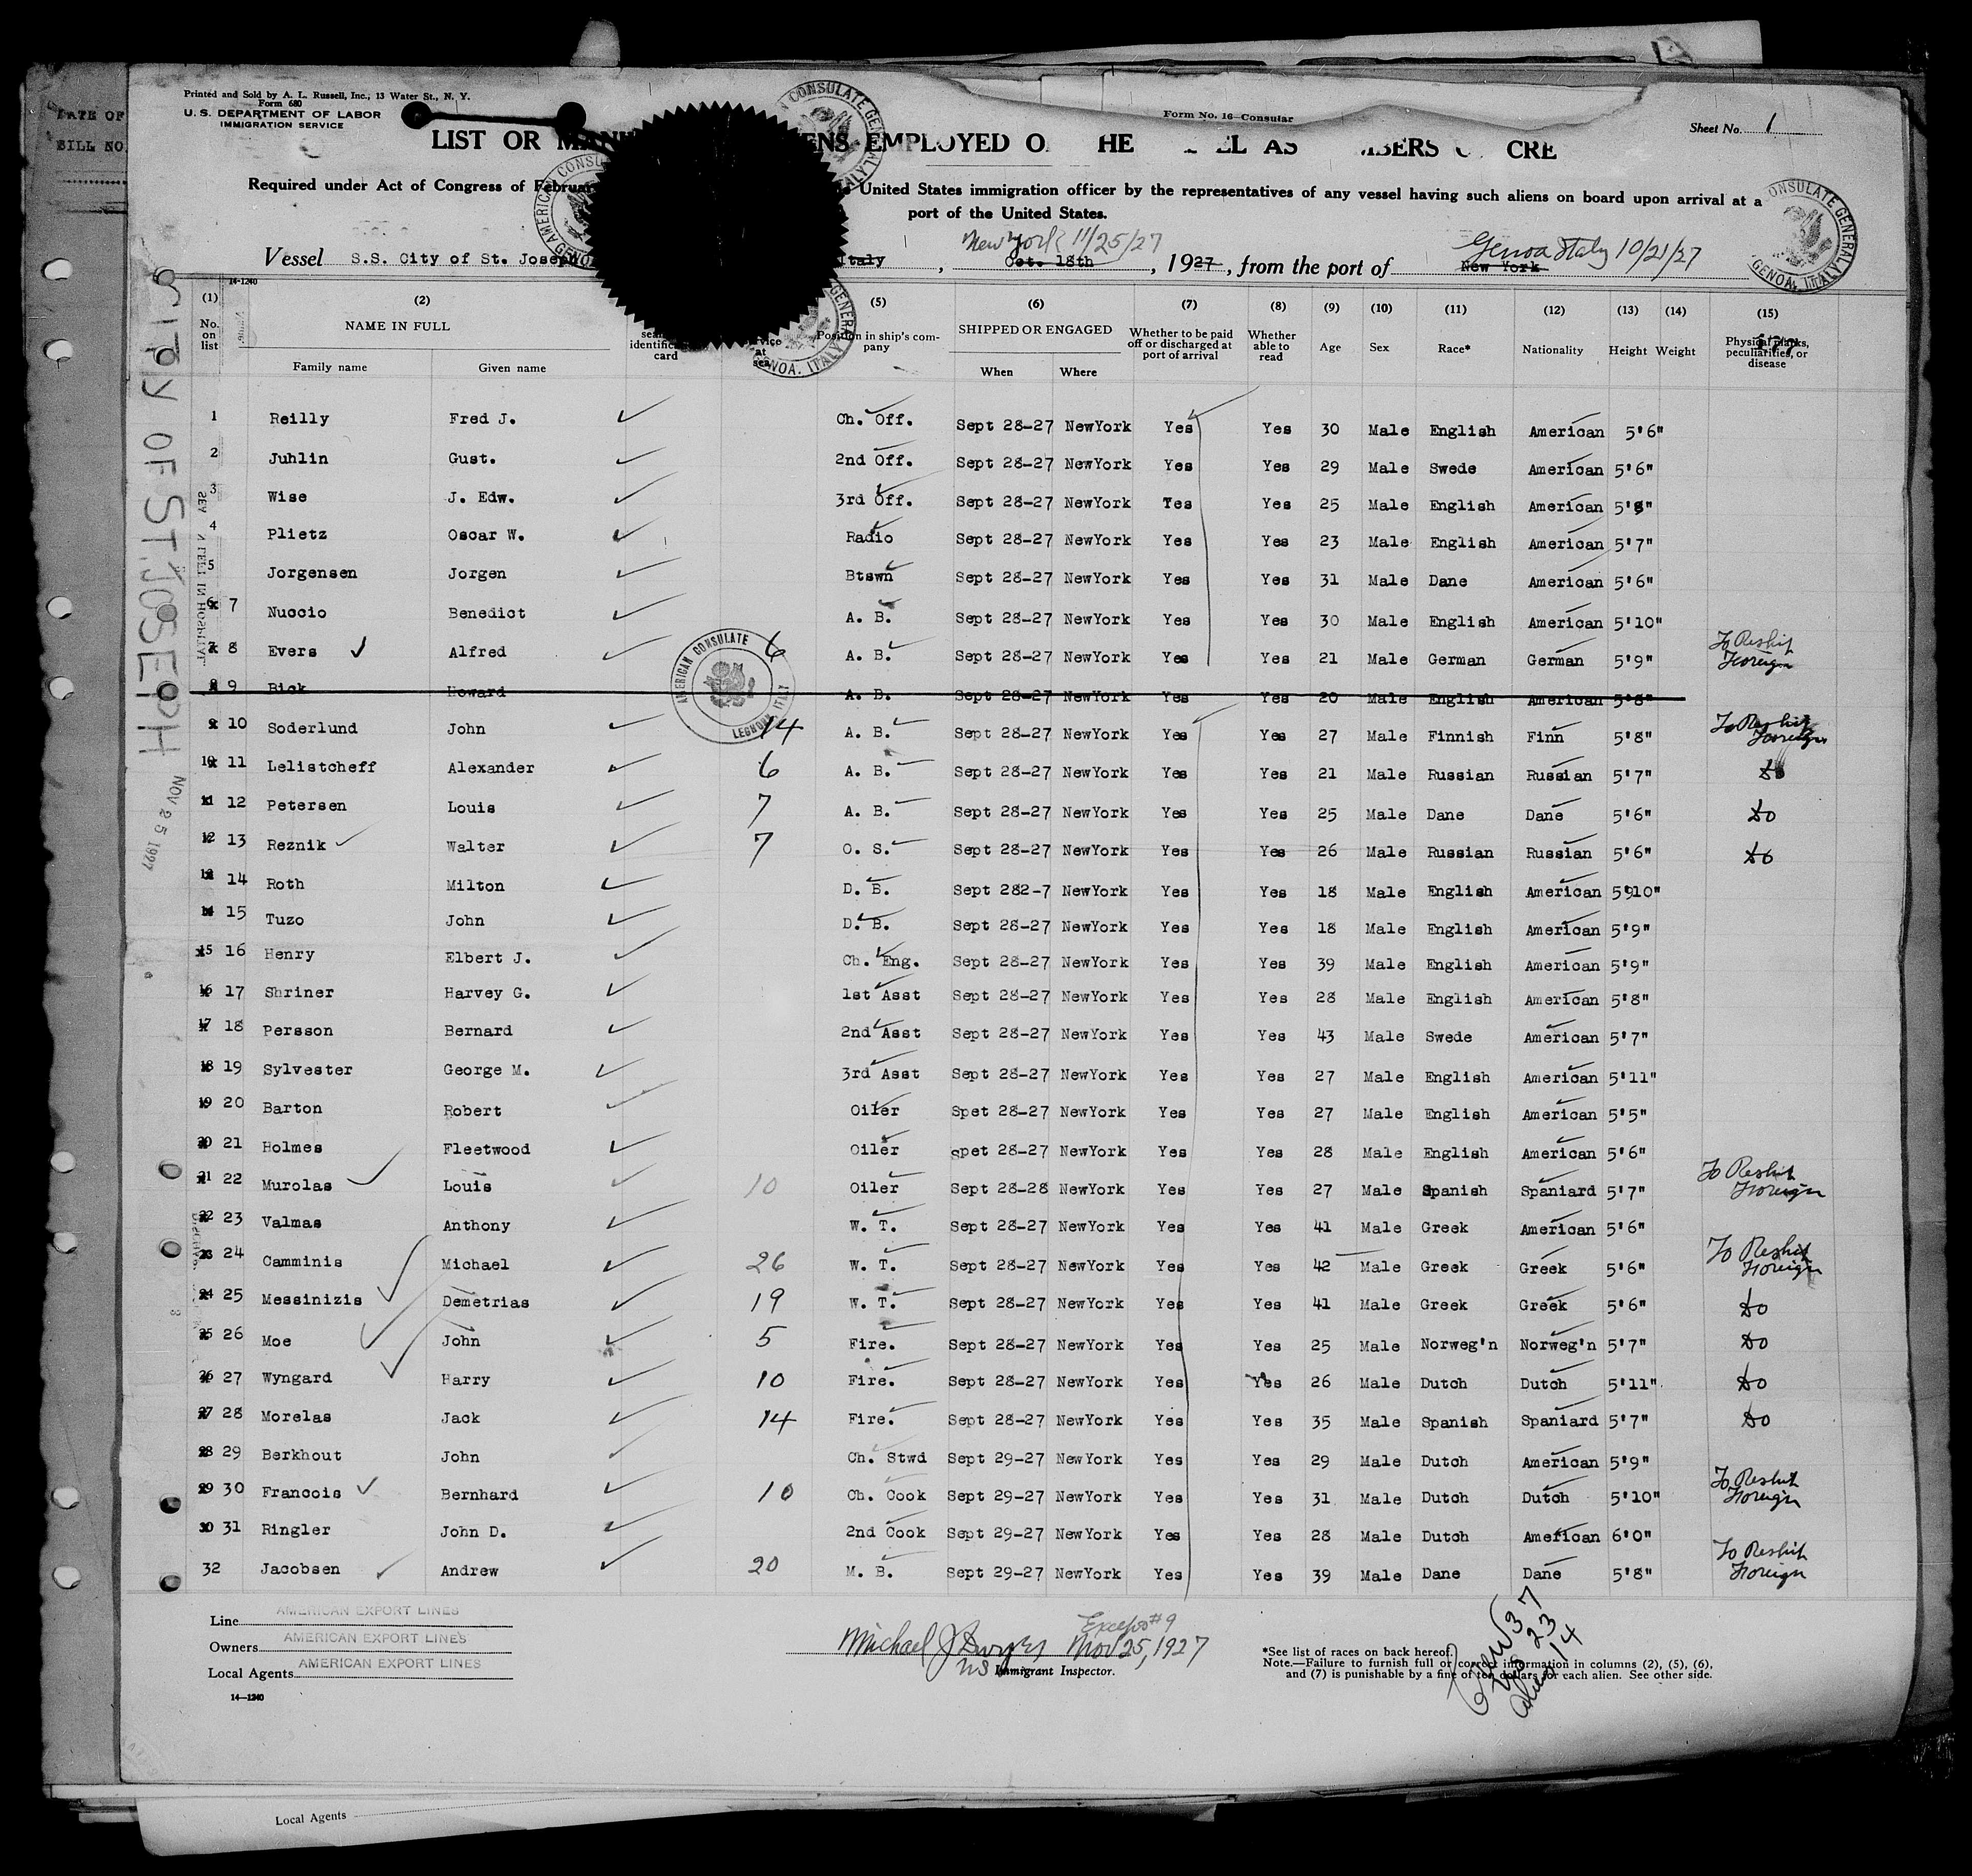 DATE OF
BILL NO.
Printed and Sold by A. L. Russell, Inc., 13 Water St., N. Y.
Form 680
U. S. DEPARTMENT OF LABOR
IMMIGRATION SERVICE
Form No. 16—Consular
Sheet No. 1
LIST OR EMPLOYED AS CRE
Required under Act of Congress of United States immigration officer by the representatives of any vessel having such aliens on board upon arrival at a
port of the United States.
New York 11/25/27
Genoa Italy 10/21/27
Vessel S.S. City of St. Joseph Italy, Oct. 18th, 1927, from the port of New York
AMERICAN CONSULATE GENERAL GENOA, ITALY
CITY OF ST. JOSEPH
NOV 25 1927
14-1240
(1) No. on list
(2) NAME IN FULL
Family name Given name
identification card
(5) Position in ship's company
(6) SHIPPED OR ENGAGED
When Where
(7) Whether to be paid off or discharged at port of arrival
(8) Whether able to read
(9) Age
(10) Sex
(11) Race*
(12) Nationality
(13) Height
(14) Weight
(15) Physical marks, peculiarities, or disease
1 Reilly Fred J. Ch. Off. Sept 28-27 NewYork Yes Yes 30 Male English American 5'6"
2 Juhlin Gust. 2nd Off. Sept 28-27 NewYork Yes Yes 29 Male Swede American 5'6"
3 Wise J. Edw. 3rd Off. Sept 28-27 NewYork Tes Yes 25 Male English American 5'8"
4 Plietz Oscar W. Radio Sept 28-27 NewYork Yes Yes 23 Male English American 5'7"
5 Jorgensen Jorgen Btswn Sept 28-27 NewYork Yes Yes 31 Male Dane American 5'6"
6 7 Nuccio Benedict A. B. Sept 28-27 NewYork Yes Yes 30 Male English American 5'10"
7 8 Evers Alfred 6 A. B. Sept 28-27 NewYork Yes Yes 21 Male German German 5'9" To Reship Foreign
AMERICAN CONSULATE LEGHORN ITALY
8 9 Bick Howard A. B. Sept 28-27 NewYork Yes Yes 20 Male English American 5'8"
9 10 Soderlund John 14 A. B. Sept 28-27 NewYork Yes Yes 27 Male Finnish Finn 5'8" To Reship Foreign
10 11 Lelistcheff Alexander 6 A. B. Sept 28-27 NewYork Yes Yes 21 Male Russian Russian 5'7" do
11 12 Petersen Louis 7 A. B. Sept 28-27 NewYork Yes Yes 25 Male Dane Dane 5'6" do
12 13 Reznik Walter 7 O. S. Sept 28-27 NewYork Yes Yes 26 Male Russian Russian 5'6" do
13 14 Roth Milton D. B. Sept 282-7 NewYork Yes Yes 18 Male English American 5'10"
14 15 Tuzo John D. B. Sept 28-27 NewYork Yes Yes 18 Male English American 5'9"
15 16 Henry Elbert J. Ch. Eng. Sept 28-27 NewYork Yes Yes 39 Male English American 5'9"
16 17 Shriner Harvey G. 1st Asst Sept 28-27 NewYork Yes Yes 28 Male English American 5'8"
17 18 Persson Bernard 2nd Asst Sept 28-27 NewYork Yes Yes 43 Male Swede American 5'7"
18 19 Sylvester George M. 3rd Asst Sept 28-27 NewYork Yes Yes 27 Male English American 5'11"
19 20 Barton Robert Oiler Spet 28-27 NewYork Yes Yes 27 Male English American 5'5"
20 21 Holmes Fleetwood Oiler Spet 28-27 NewYork Yes Yes 28 Male English American 5'6"
21 22 Murolas Louis 10 Oiler Sept 28-28 NewYork Yes Yes 27 Male Spanish Spaniard 5'7" To Reship Foreign
22 23 Valmas Anthony W. T. Sept 28-27 NewYork Yes Yes 41 Male Greek American 5'6"
23 24 Camminis Michael 26 W. T. Sept 28-27 NewYork Yes Yes 42 Male Greek Greek 5'6" To Reship Foreign
24 25 Messinizis Demetrias 19 W. T. Sept 28-27 NewYork Yes Yes 41 Male Greek Greek 5'6" do
25 26 Moe John 5 Fire. Sept 28-27 NewYork Yes Yes 25 Male Norweg'n Norweg'n 5'7" do
26 27 Wyngard Harry 10 Fire. Sept 28-27 NewYork Yes Yes 26 Male Dutch Dutch 5'11" do
27 28 Morelas Jack 14 Fire. Sept 28-27 NewYork Yes Yes 35 Male Spanish Spaniard 5'7" do
28 29 Berkhout John Ch. Stwd Sept 29-27 NewYork Yes Yes 29 Male Dutch American 5'9"
29 30 Francois Bernhard 10 Ch. Cook Sept 29-27 NewYork Yes Yes 31 Male Dutch Dutch 5'10" To Reship Foreign
30 31 Ringler John D. 2nd Cook Sept 29-27 NewYork Yes Yes 28 Male Dutch American 6'0"
32 Jacobsen Andrew 20 M. B. Sept 29-27 NewYork Yes Yes 39 Male Dane Dane 5'8" To Reship Foreign
Line AMERICAN EXPORT LINES
Owners AMERICAN EXPORT LINES
Local Agents AMERICAN EXPORT LINES
14—1240
Except #9
Michael J Dwyer Nov 25, 1927
US Immigrant Inspector.
*See list of races on back hereof.
Note.—Failure to furnish full or correct information in columns (2), (5), (6),
and (7) is punishable by a fine of ten dollars for each alien. See other side.
Crew 37
US 23
Aliens 14
Local Agents